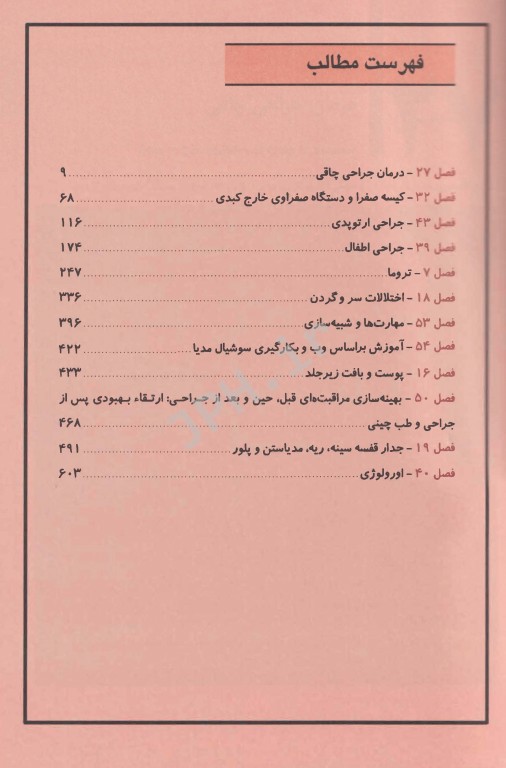 فهرست مطالب
فصل ۲۷ - درمان جراحی چاقی ۹
فصل ۳۲ - کیسه صفرا و دستگاه صفراوی خارج کبدی ۶۸
فصل ۴۳ - جراحی ارتوپدی ۱۱۶
فصل ۳۹ - جراحی اطفال ۱۷۴
فصل ۷ - تروما ۲۴۷
فصل ۱۸ - اختلالات سر و گردن ۳۳۶
فصل ۵۳ - مهارت‌ها و شبیه‌سازی ۳۹۶
فصل ۵۴ - آموزش براساس وب و بکارگیری سوشیال مدیا ۴۲۲
فصل ۱۶ - پوست و بافت زیرجلد ۴۳۳
فصل ۵۰ - بهینه‌سازی مراقبت‌های قبل، حین و بعد از جراحی: ارتقاء بهبودی پس از
جراحی و طب چینی ۴۶۸
فصل ۱۹ - جدار قفسه سینه، ریه، مدیاستن و پلور ۴۹۱
فصل ۴۰ - اورولوژی ۶۰۳